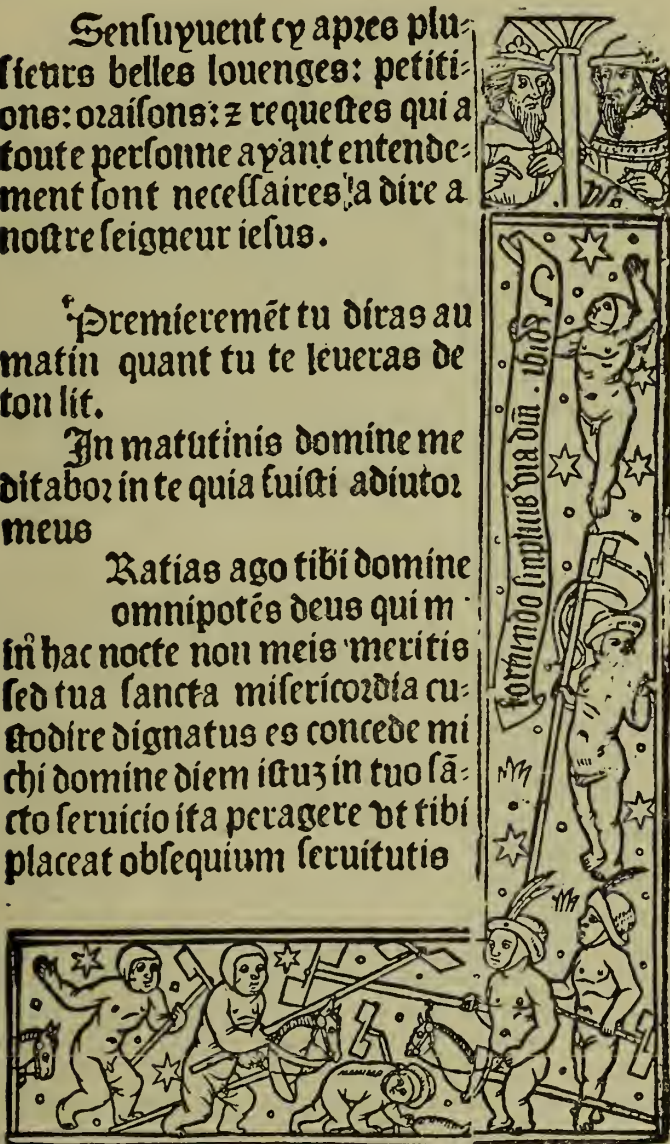 Senſuyuent cy apꝛes plu⸗
ſieurs belles louenges: petiti⸗
ons: oꝛaiſons: ⁊ requeſtes qui a
toute perſonne ayant entende⸗
ment ſont neceſſaires a dire a
noſtre ſeigneur ieſus.
Premieremēt tu diras au
matin quant tu te leueras de
ton lit.
In matutinis domine me
ditaboꝛ in te quia fuiſti adiutoꝛ
meus
Ratias ago tibi domine
omnipotēs deus qui m
in hac nocte non meis meritis
ſed tua ſancta miſericoꝛdia cu⸗
ſtodire dignatus es concede mi
chi domine diem iſtuꝫ in tuo ſā⸗
cto ſeruicio ita peragere vt tibi
placeat obſequium ſeruitutis
fortitudo ſimplicis via dñi .